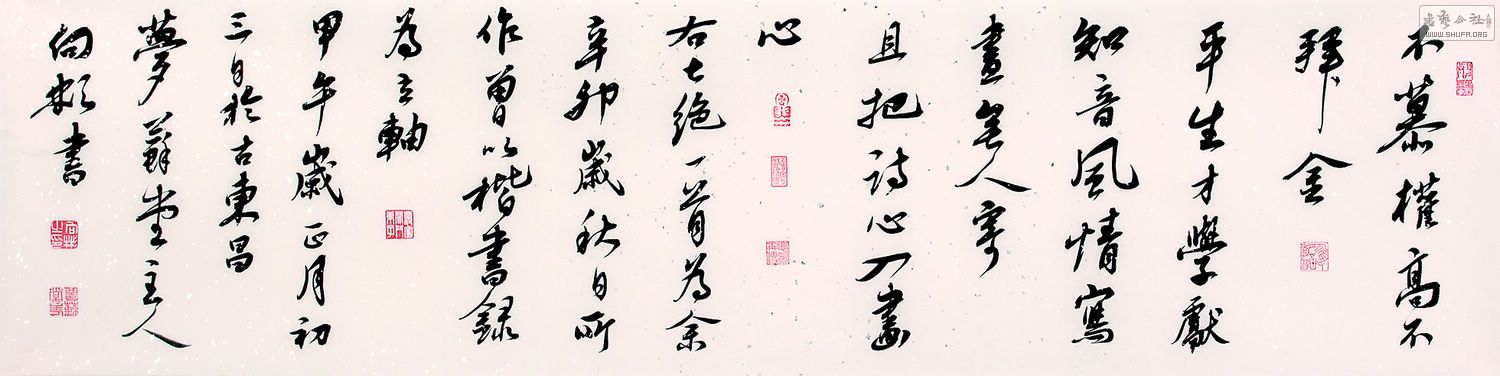 不慕權高不
拜金
平生才學獻
知音風情寫
盡無人寄
且把詩心入畫
心
右七絕一首為余
辛卯歲秋日所
作曾以楷書錄
為立軸
甲午歲正月初
三日於古東昌
夢蘇堂主人
書
書藝公社
WWW.SHUFA.ORG